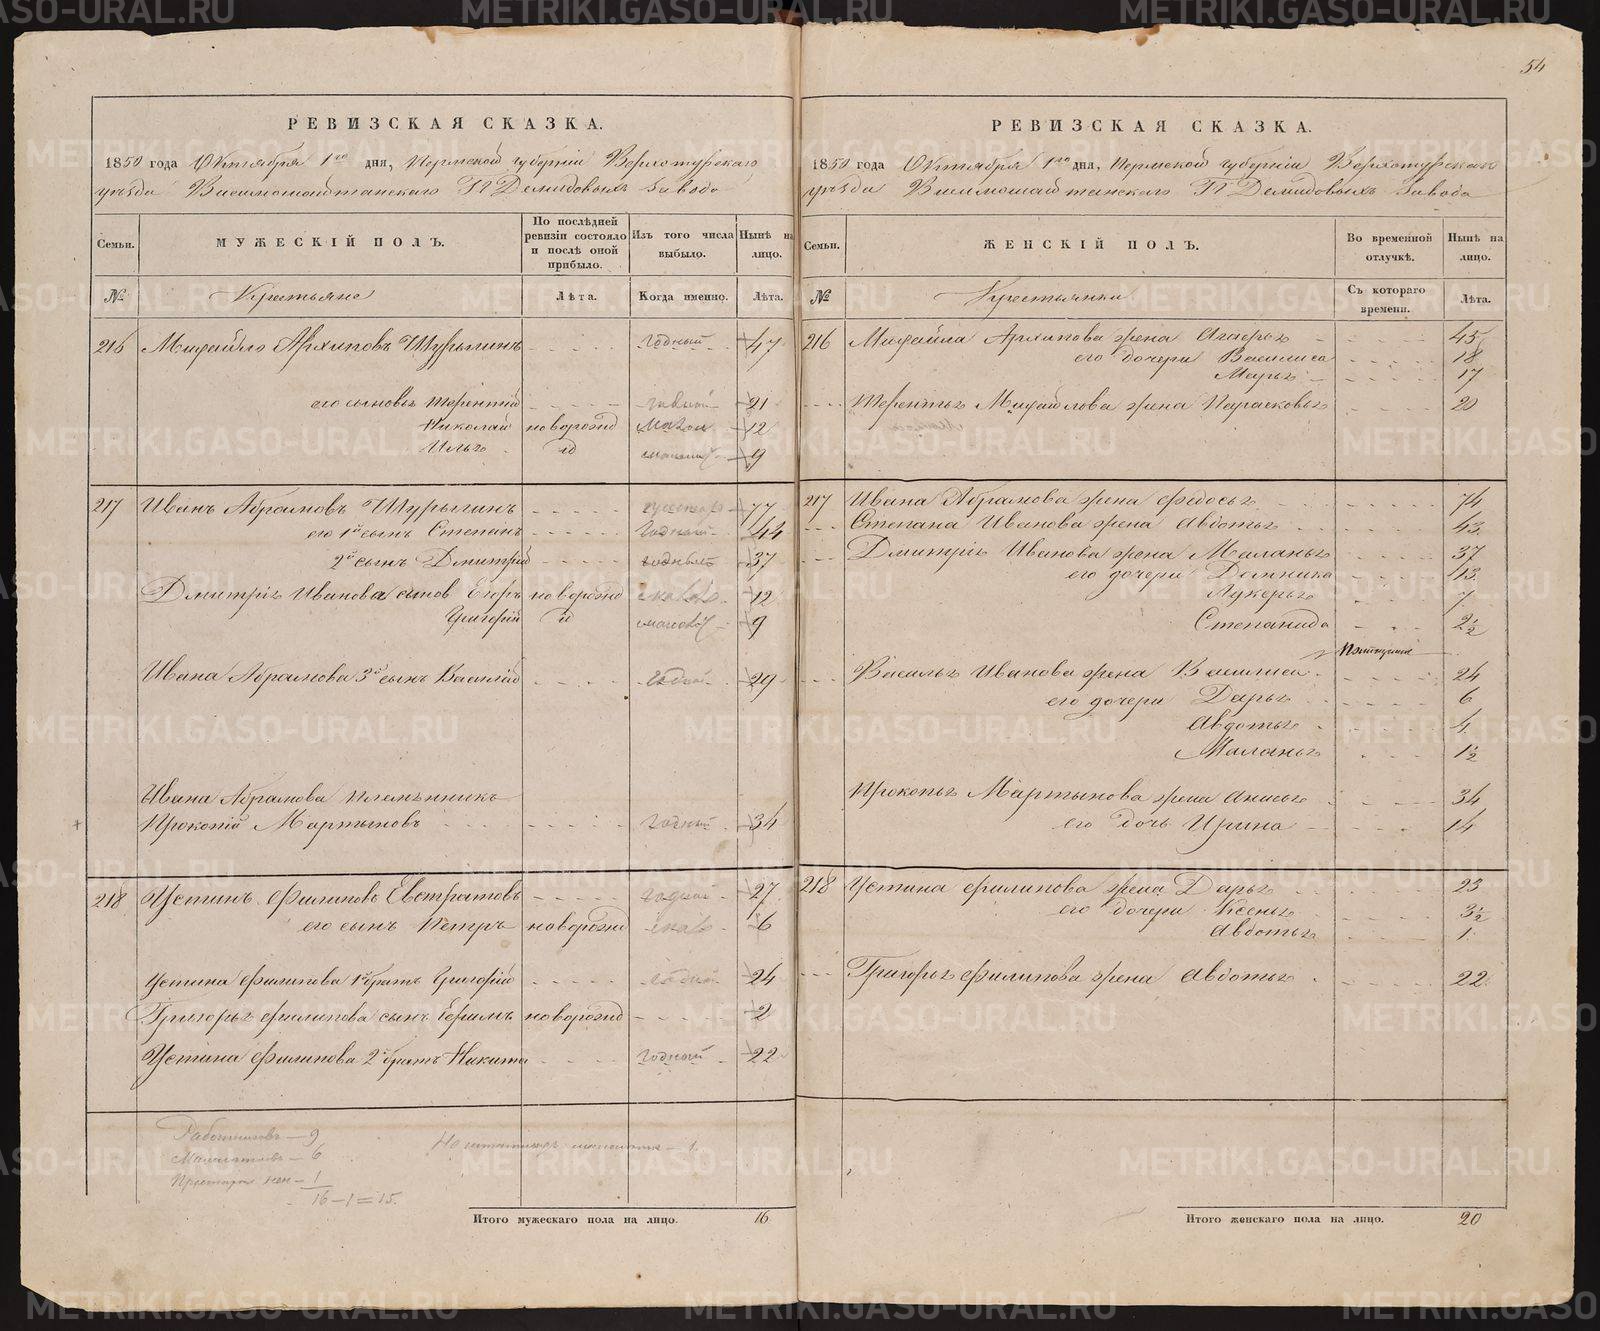 54
РЕВИЗСКАЯ СКАЗКА.
1850 года Октября 1го дня, Пермской губернiи Верхотурскаго
уѣзда Висимошайтанскаго Гг Демидовыхъ завода
Семьи. МУЖЕСКІЙ ПОЛЪ. По послѣдней ревизіи состояло и послѣ оной прибыло. Изъ того числа выбыло. Нынѣ на лицо.
№ Крестьяне Лѣта. Когда именно. Лѣта.
216 Михайло Архиповъ Шурыгинъ годный 47
его сыновья Терентiй годной 21
Николай новорожд 12
Илья id 9
217 Иванъ Абрамовъ Шурыгинъ 77
его 1й сынъ Степанъ годный 44
2й сынъ Дмитрiй годный 37
Дмитрiя Иванова сынов Егоръ новорожд 12
Григорiй id 9
Ивана Абрамова 3й сынъ Василiй годной 29
Ивана Абрамова племянникъ
Прокопiй Мартыновъ годный 34
218 Устинъ Филиповъ Евстратовъ годной 27
его сынъ Петръ новорожд 6
Устина Филипова 1й братъ Григорiй годной 24
Григорья Филипова сынъ новорожд 2
Устина Филипова 2й братъ Никита годный 22
Работниковъ — 9
Малолѣтковъ — 6
Престарѣл — 1
16 — 1 = 15.
Итого мужескаго пола на лицо. 16
РЕВИЗСКАЯ СКАЗКА.
1850 года Октября 1го дня, Пермской губернiи Верхотурскаго
уѣзда Висимошайтанскаго Гг Демидовыхъ завода
Семьи. ЖЕНСКІЙ ПОЛЪ. Во временной отлучкѣ. Нынѣ на лицо.
№ Крестьянки Съ котораго времени. Лѣта.
216 Михайла Архипова жена 45
его дочери Василиса 18
Марья 17
Терентья Михайлова жена Парасковья 20
217 Ивана Абрамова жена Федосья 74
Степана Иванова жена Авдотья 43
Дмитрiя Иванова жена Маланья 37
его дочери Домника 13
Лукерья 7
Степанида 2½
Василья Иванова жена Василиса 24
его дочери Дарья 6
Авдотья 4
Маланья 1½
Прокопья Мартынова жена Анисья 34
его дочь Ирина 14
218 Устина Филипова жена Дарья 23
его дочери Ксенья 3½
Авдотья 1
Григорья Филипова жена Авдотья 22
Итого женскаго пола на лицо. 20
METRIKI.GASO-URAL.RU